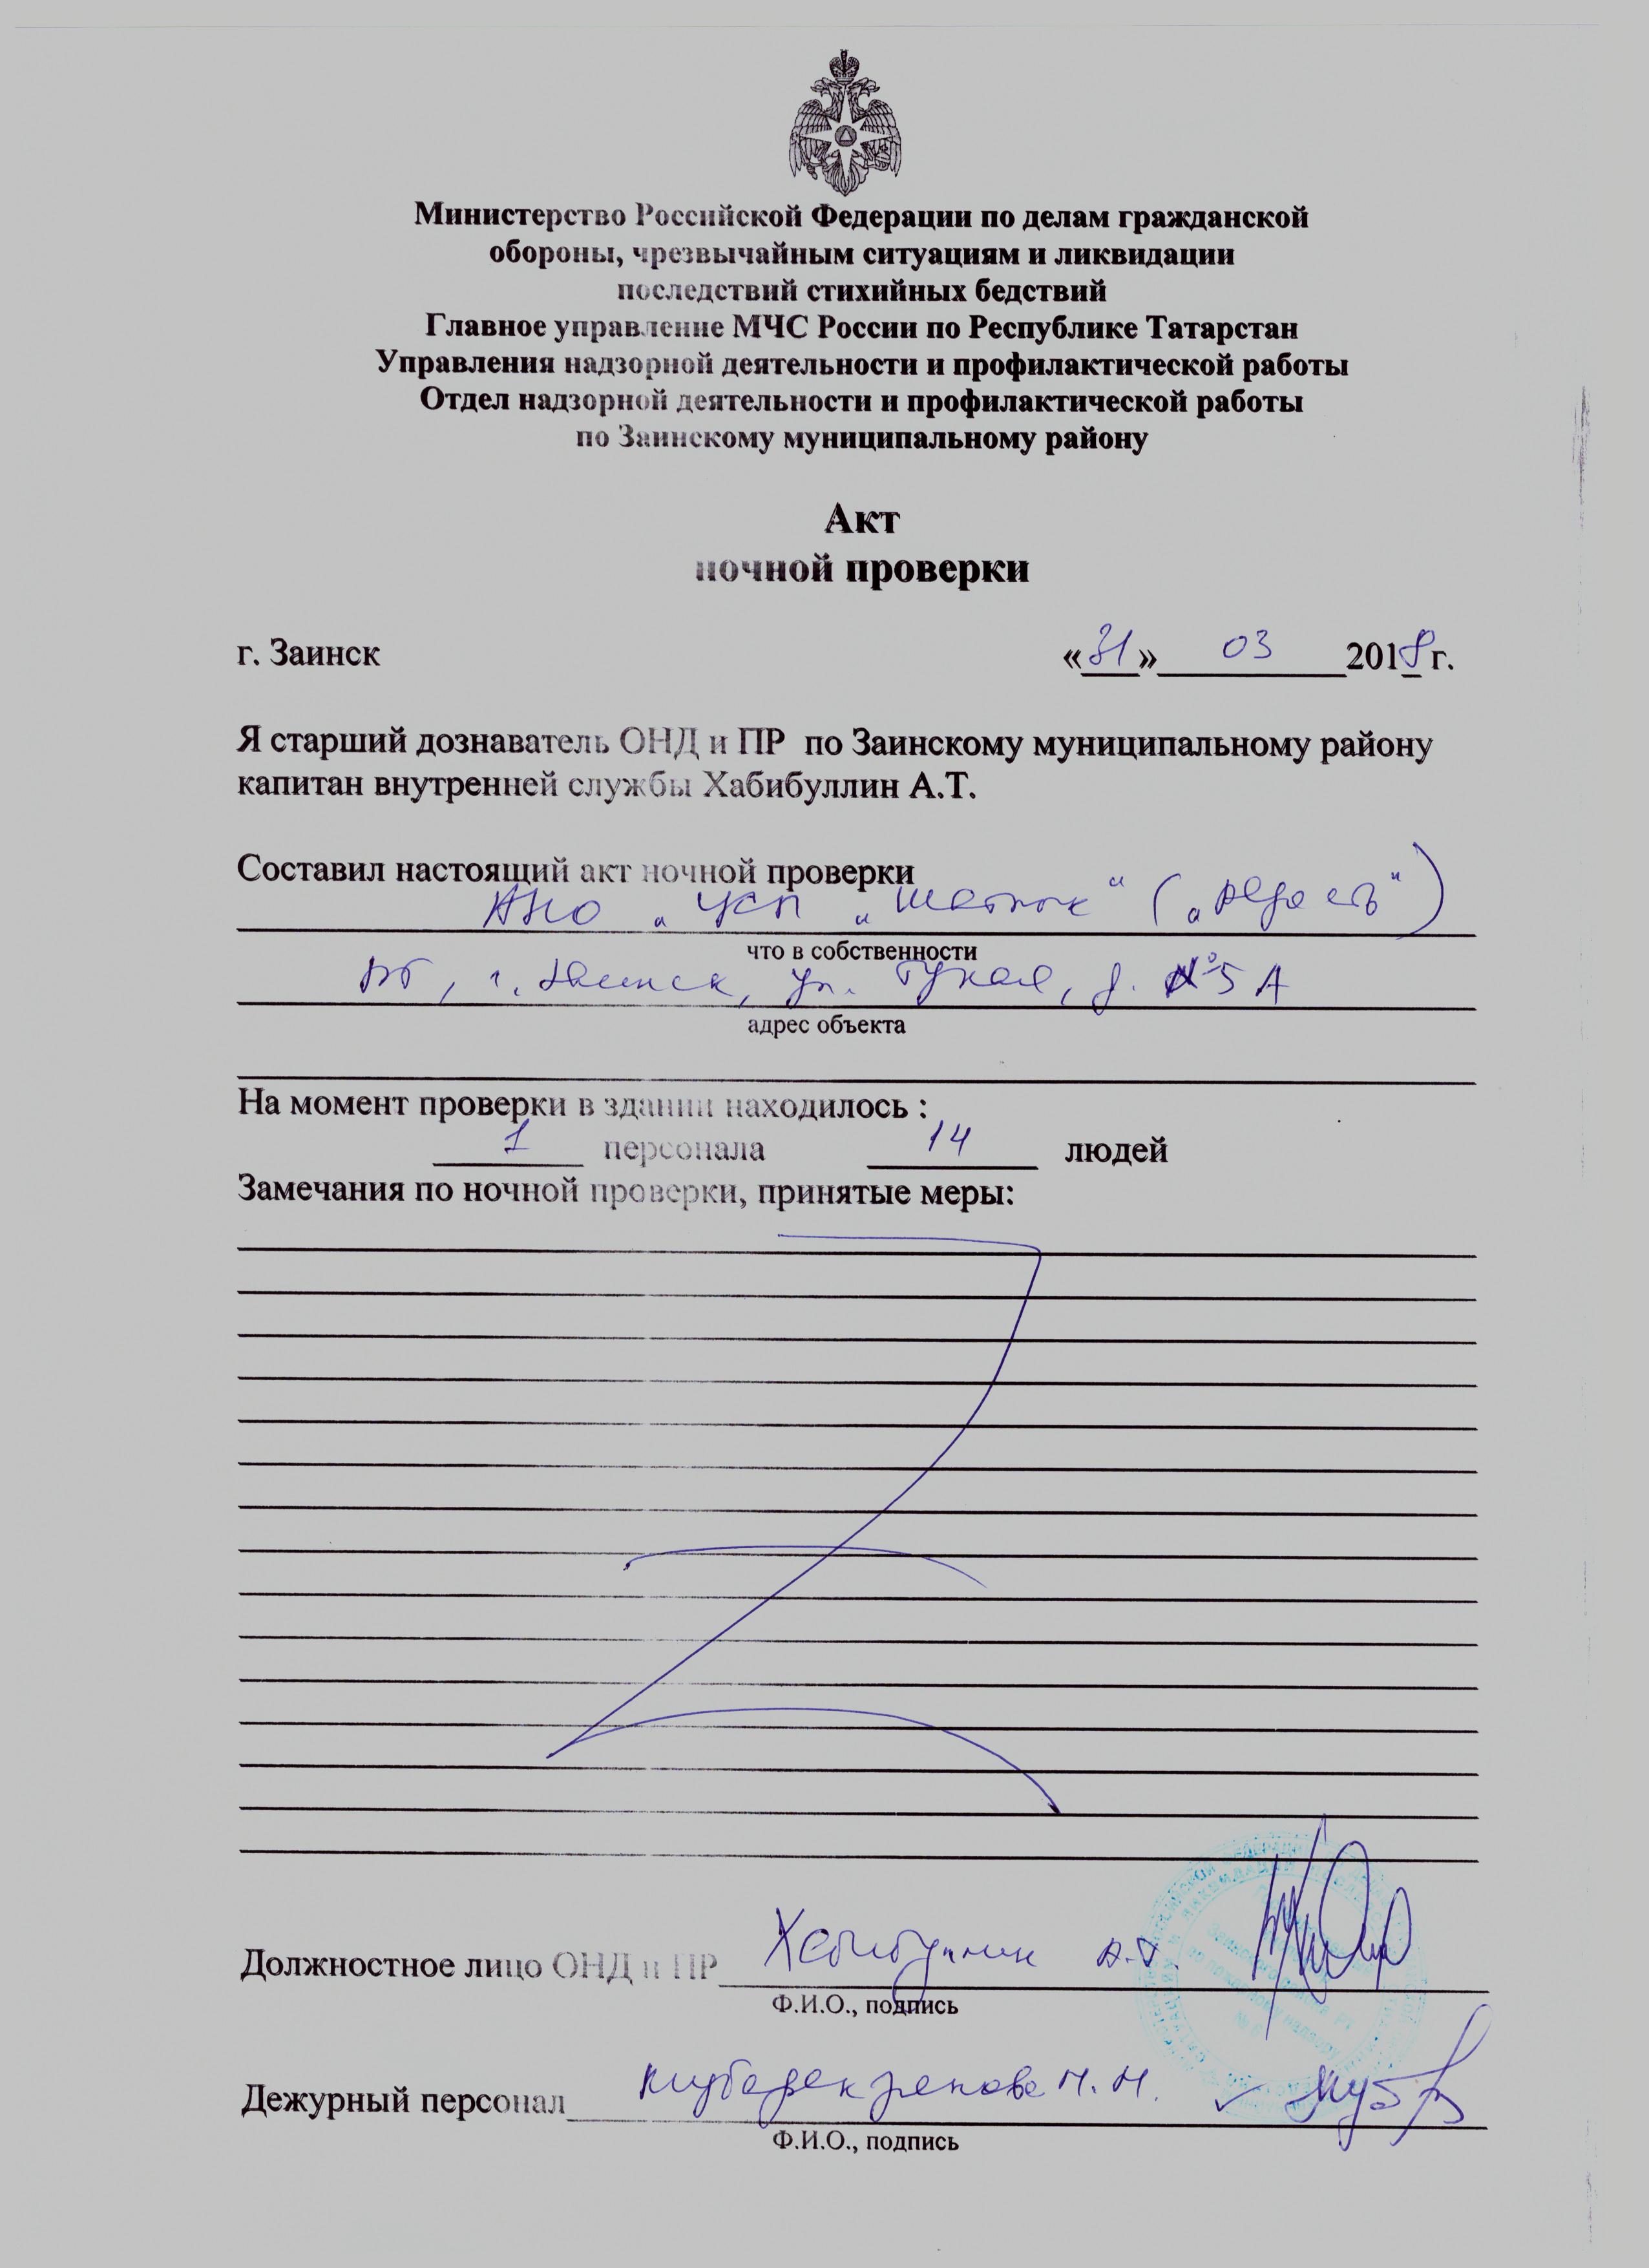 Министерство Российской Федерации по делам гражданской
обороны, чрезвычайным ситуациям и ликвидации
последствий стихийных бедствий
Главное управление МЧС России по Республике Татарстан
Управления надзорной деятельности и профилактической работы
Отдел надзорной деятельности и профилактической работы
по Заинскому муниципальному району
Акт
ночной проверки
г. Заинск «31» 03 2018 г.
Я старший дознаватель ОНД и ПР по Заинскому муниципальному району
капитан внутренней службы Хабибуллин А.Т.
Составил настоящий акт ночной проверки
АНО „ЦСП „Шатлык“ („Радость“)
что в собственности
РТ, г. Заинск, ул. Тукая, д. №5 А
адрес объекта
На момент проверки в здании находилось :
1 персонала 14 людей
Замечания по ночной проверки, принятые меры:
Должностное лицо ОНД и ПР Хабибуллин А.Т.
Ф.И.О., подпись
Дежурный персонал М.М.
Ф.И.О., подпись